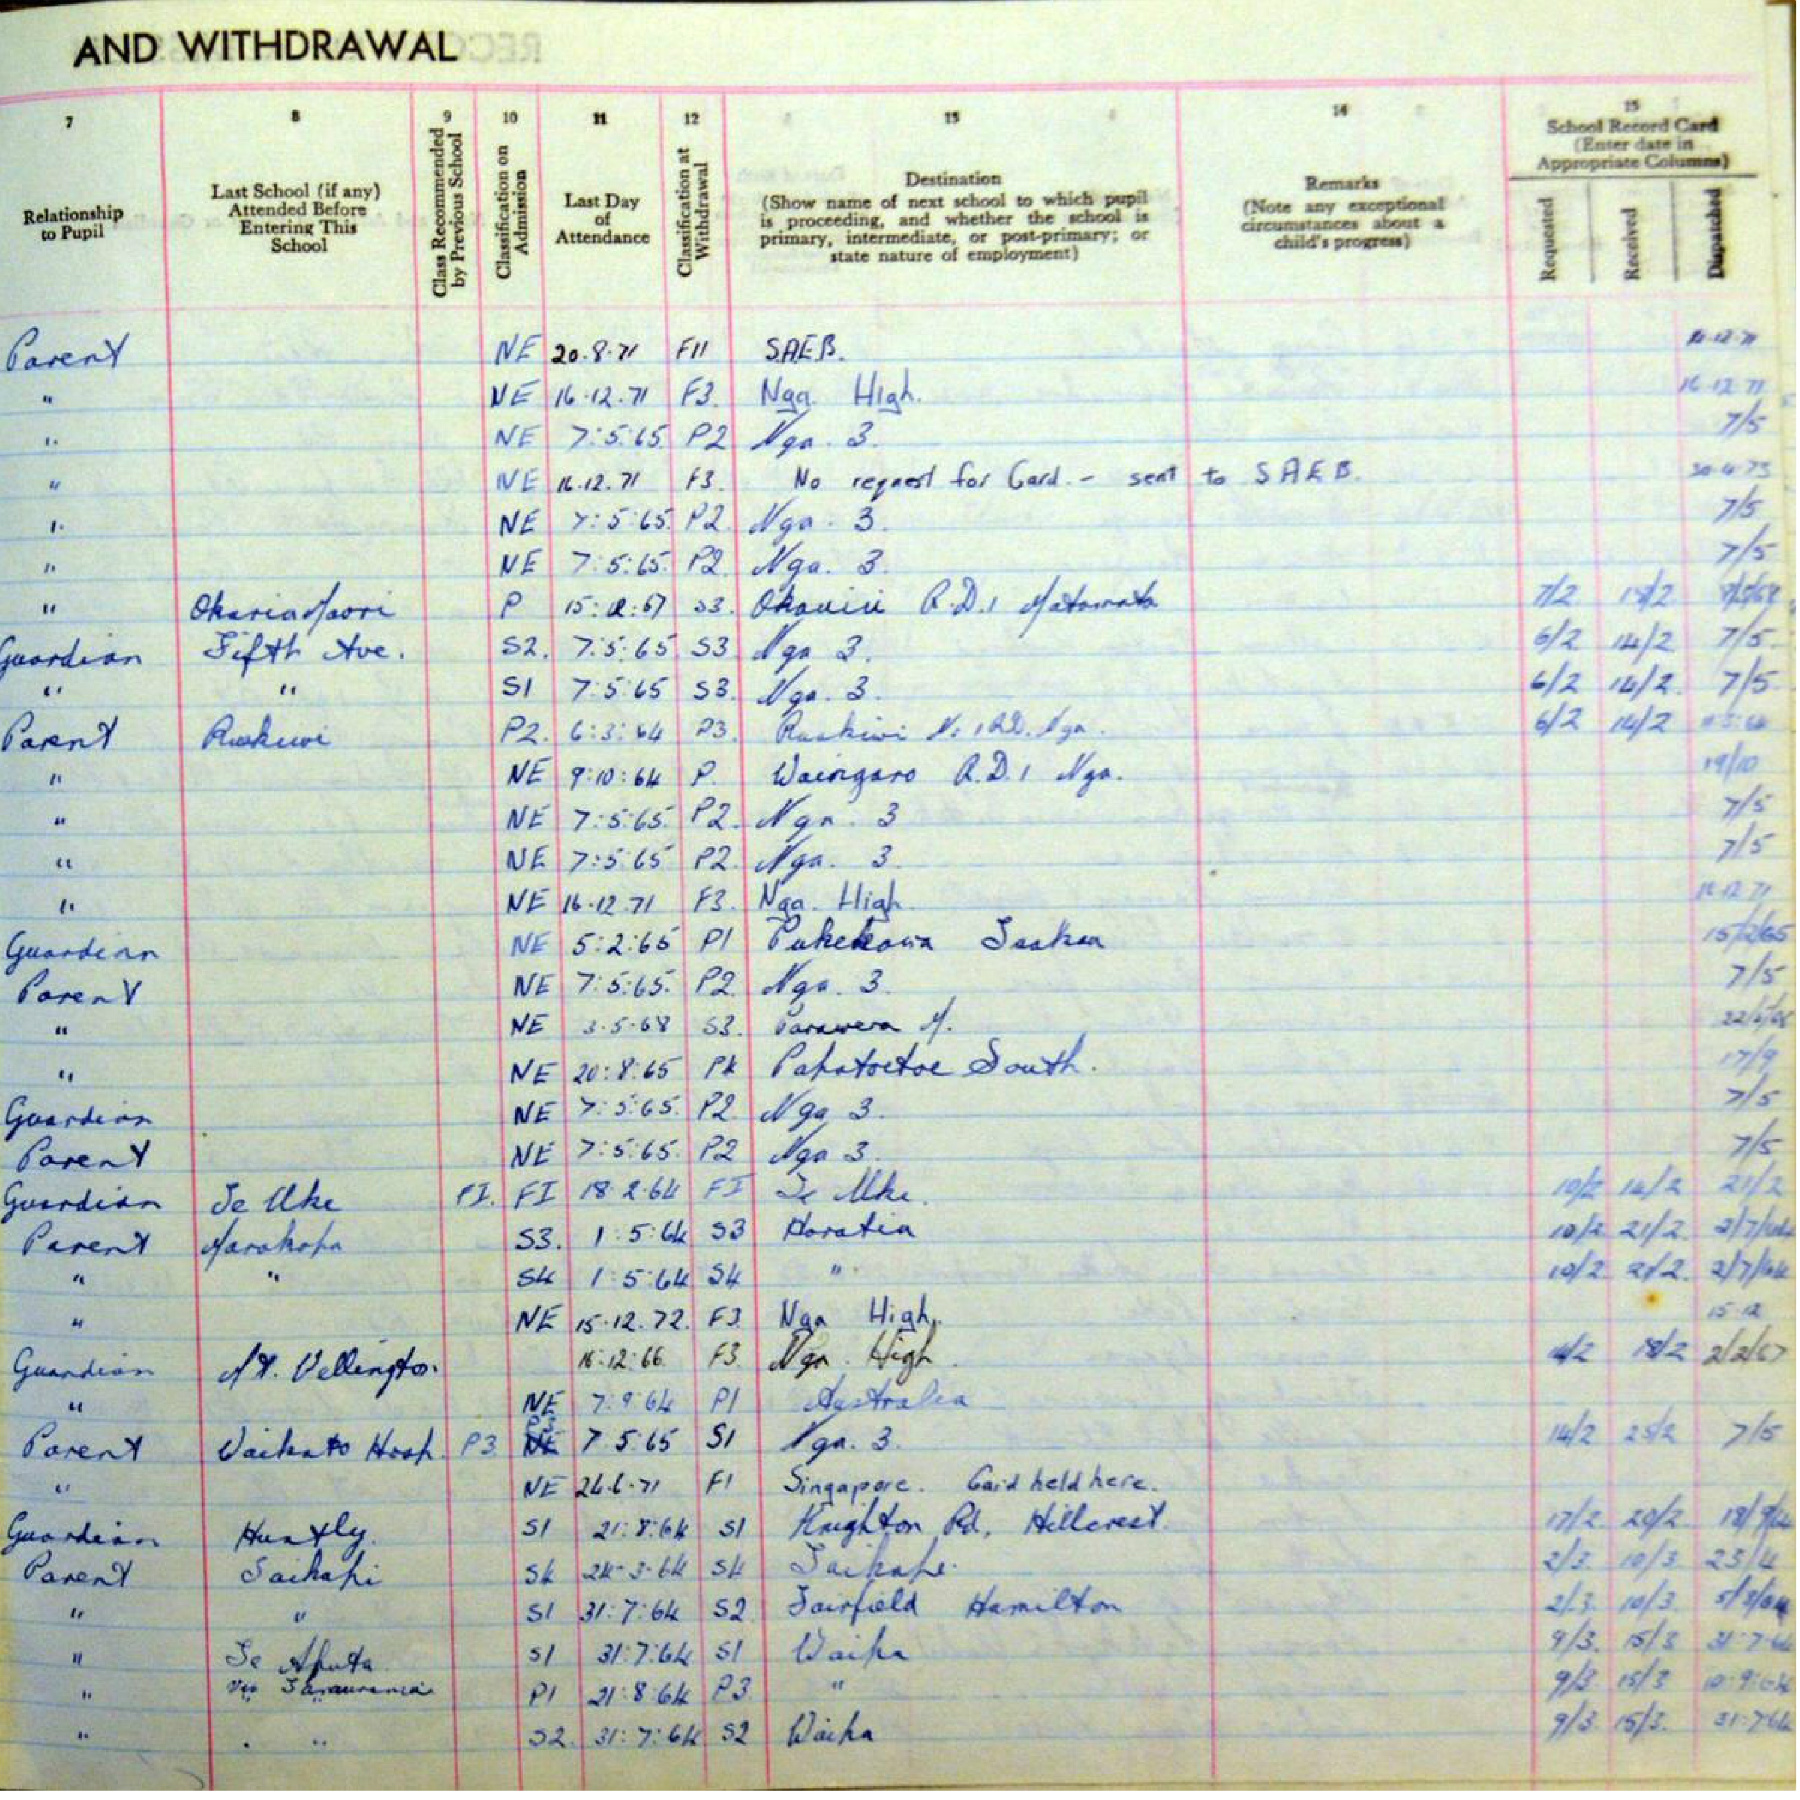 AND WITHDRAWAL
7 8 9 10 11 12 13 14 15
Relationship to Pupil
Last School (if any) Attended Before Entering This School
Class Recommended by Previous School
Classification on Admission
Last Day of Attendance
Classification at Withdrawal
Destination (Show name of next school to which pupil is proceeding, and whether the school is primary, intermediate, or post-primary; or state nature of employment)
Remarks (Note any exceptional circumstances about a child's progress)
School Record Card (Enter date in Appropriate Columns)
Requested Received Dispatched
Parent NE 20.8.71 F11 S.A.E.B.
" NE 16.12.71 F3. Nga. High. 16.12.71
" NE 7:5:65 P2 Nga. 3. 7/5
" NE 16.12.71 F3. No request for Card. - sent to S A E B.
" NE 7:5:65 P2. Nga. 3. 7/5
" NE 7:5:65. P2. Nga. 3. 7/5
" P S3. R.D.1 7/2
Guardian Fifth Ave. S2. 7:5:65 S3 Nga 3. 6/2 14/2 7/5
" " S1 7:5:65 S3. Nga. 3. 6/2 14/2. 7/5
Parent P2. 6:3:64 P3. 6/2 14/2
" NE 9:10:64 P. Waingaro R.D.1 Nga. 19/10
" NE 7:5:65 P2. Nga. 3 7/5
" NE 7:5:65 P2. Nga. 3. 7/5
" NE 16.12.71 F3. Nga. High. 16.12.71
Guardian NE 5:2:65 P1 15/2/65
Parent NE 7:5:65. P2. Nga. 3. 7/5
" NE 3.5.68 S3. Parawera M.
" NE 20:8:65 Papatoetoe South. 17/9
Guardian NE 7:5:65. P2 Nga 3. 7/5
Parent NE 7:5:65. P2 Nga 3. 7/5
Guardian Te Uku FI. FI 18.2.64 FI Te Uku. 10/2 14/2 21/2
Parent Marokopa S3. 1:5:64 S3 10/2 21/2. 2/7/64
" " S4 1:5:64 S4 " 10/2 21/2. 2/7/64
" NE 15.12.72. F3. Nga High. 15.12
Guardian Mt. Wellington. 16:12:66 F3 Nga. High 18/2 2/2/67
" NE 7:9:64 P1 Australia
Parent Waikato Hosp. P3 P3 7.5.65 S1 Nga. 3. 14/2 25/2 7/5
" NE F1 Singapore. Card held here.
Guardian Huntly. S1 21:8:64 S1 Knighton Rd, Hillcrest. 17/2. 20/2.
Parent S4 24-3-64 S4 2/3. 10/3.
" " S1 31:7:64 S2 Fairfield Hamilton 2/3. 10/3.
" S1 31:7:64 S1 9/3. 15/3 31.7.64
" P1 21:8:64 P3 " 9/3. 15/3
" S2. 31:7:64 S2 9/3. 15/3. 31:7:64